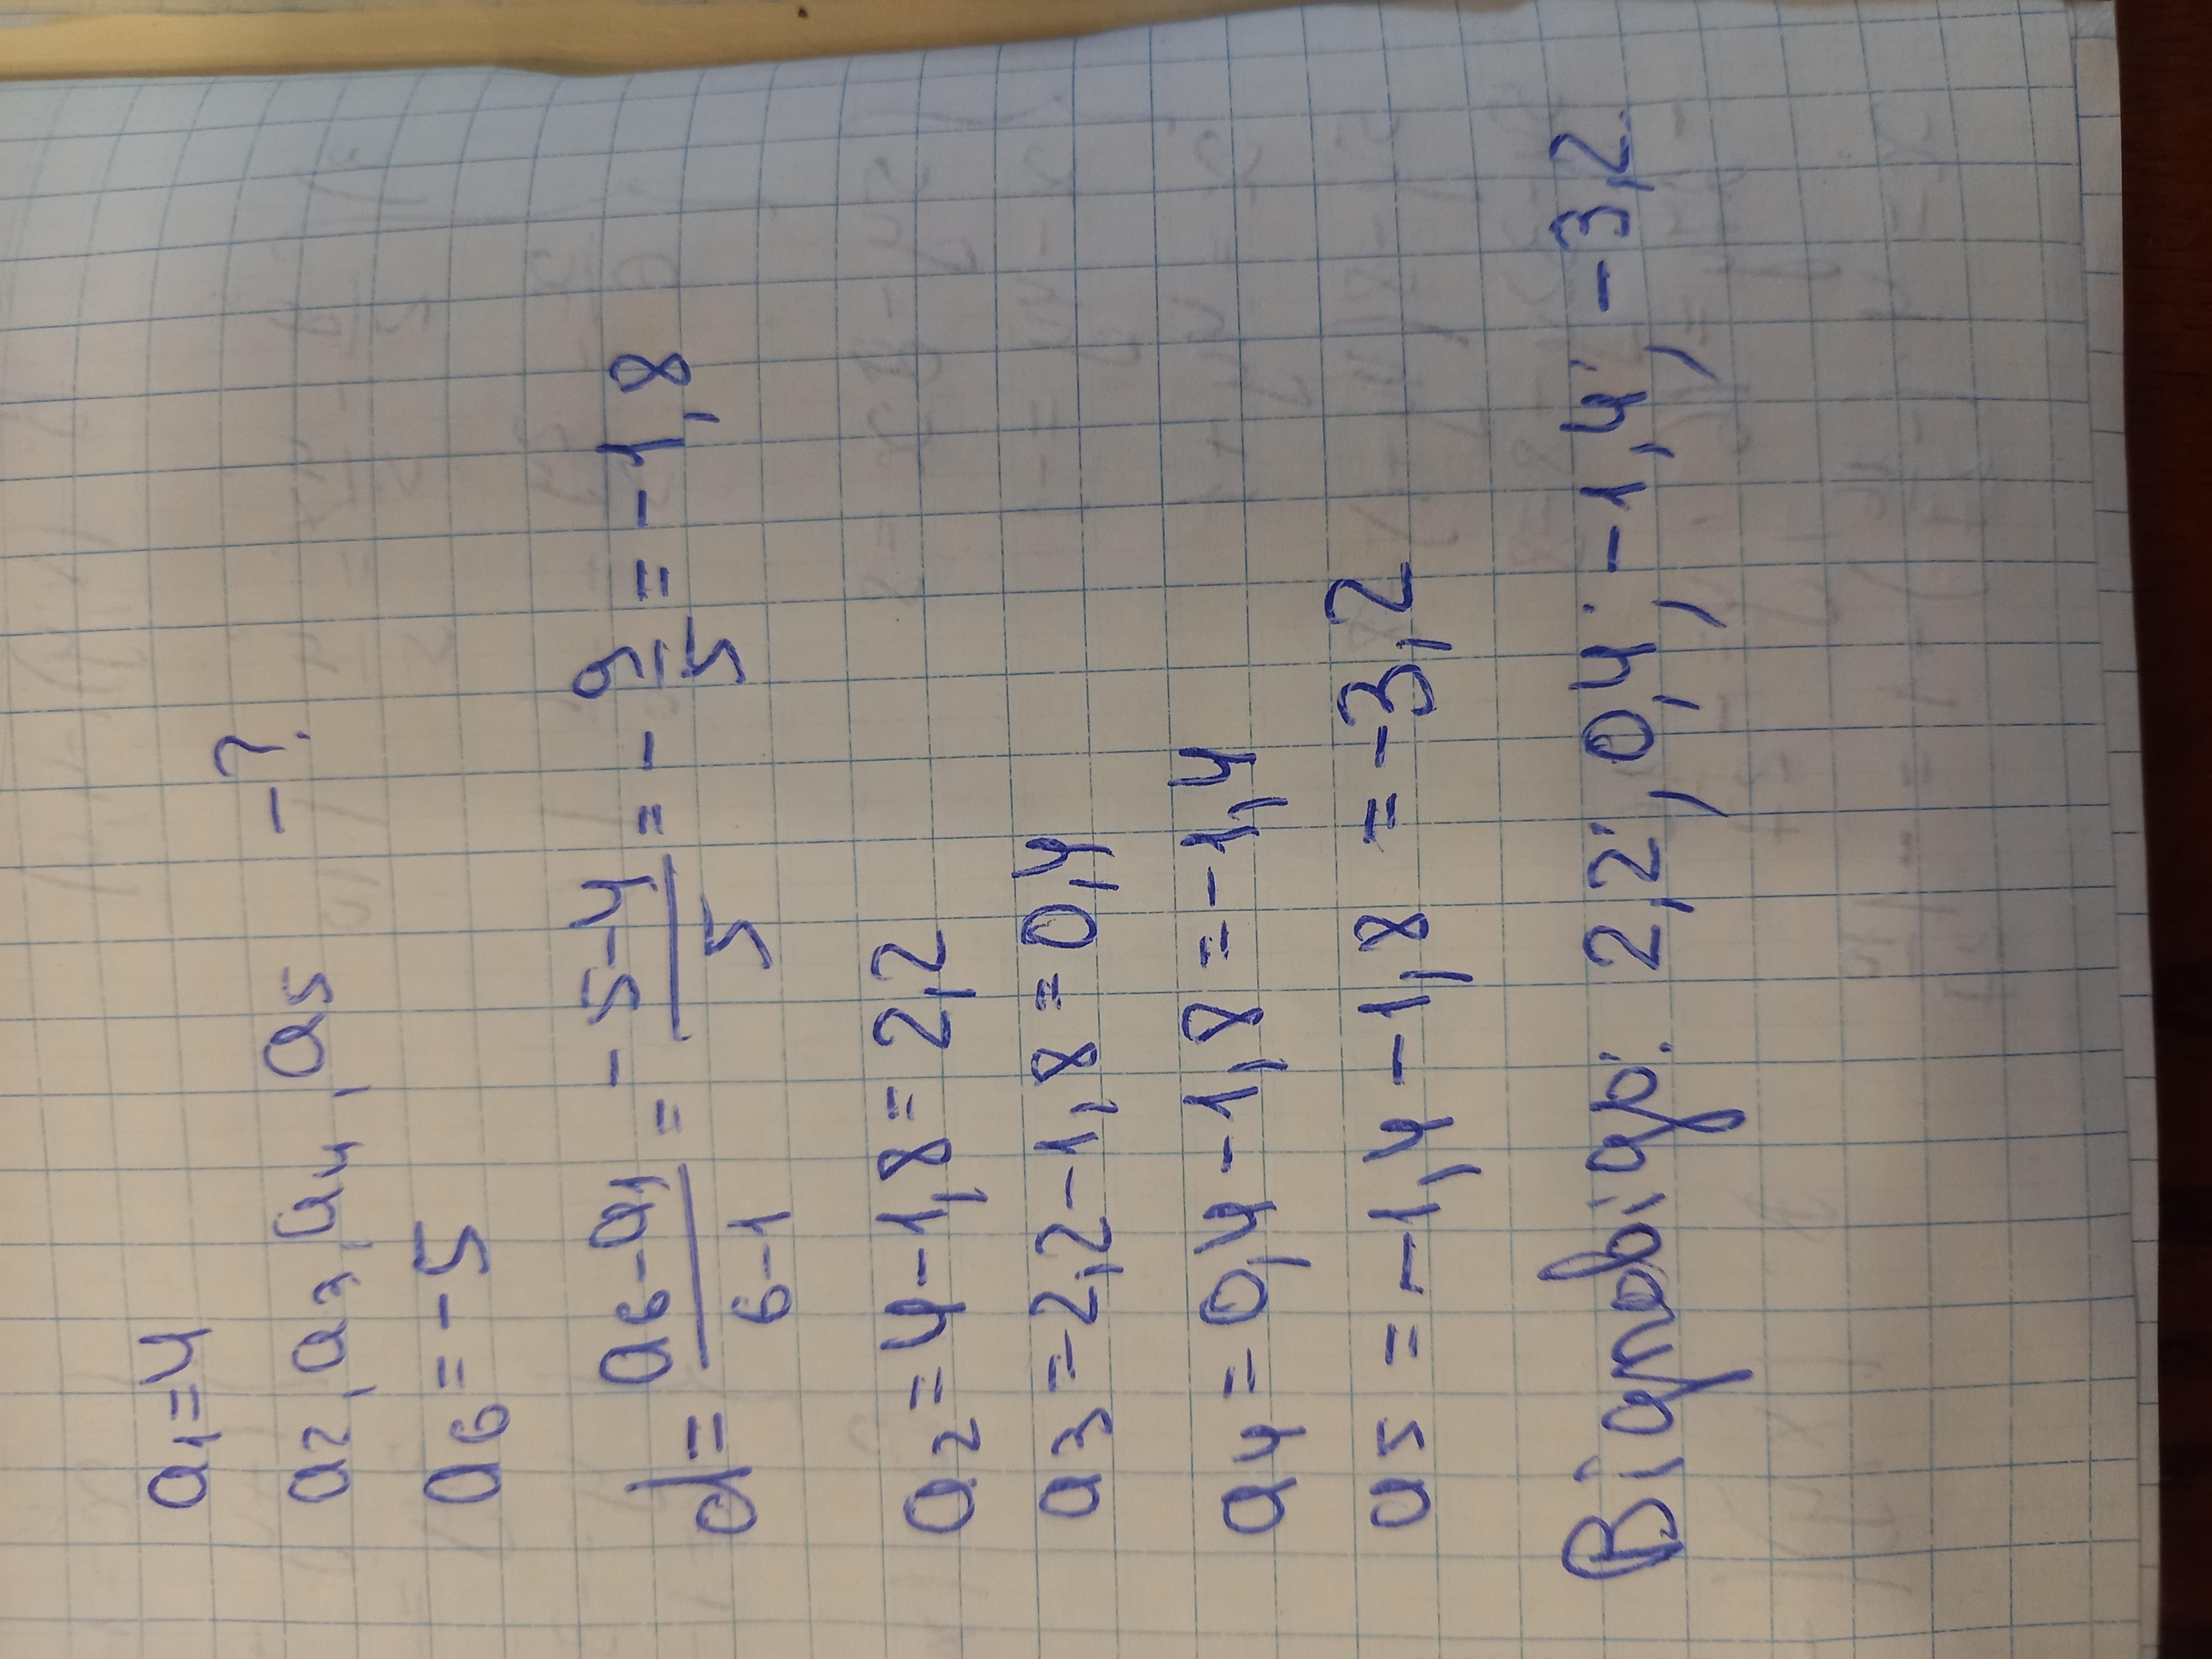 a₁=4
a₂, a₃, a₄, a₅ -?
a₆=-5
d= (a₆-a₁)/(6-1) = (-5-4)/5 = -9/5 = -1,8
a₂=4-1,8=2,2
a₃=2,2-1,8=0,4
a₄=0,4-1,8=-1,4
a₅=-1,4-1,8=-3,2
Відповідь: 2,2; 0,4; -1,4; -3,2.